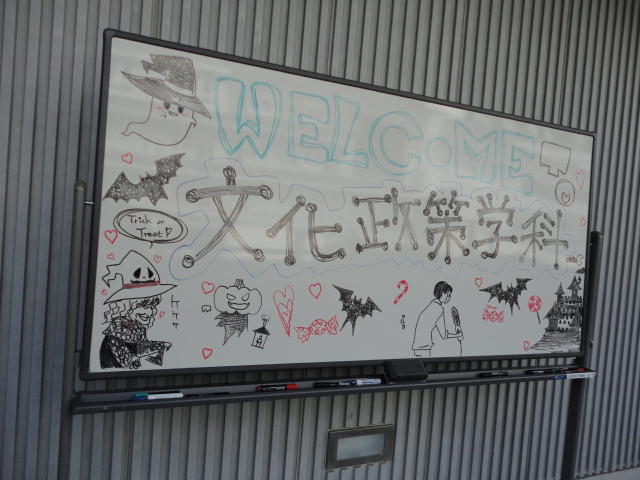 WELCOME
文化政策学科
Trick or
Treat♡